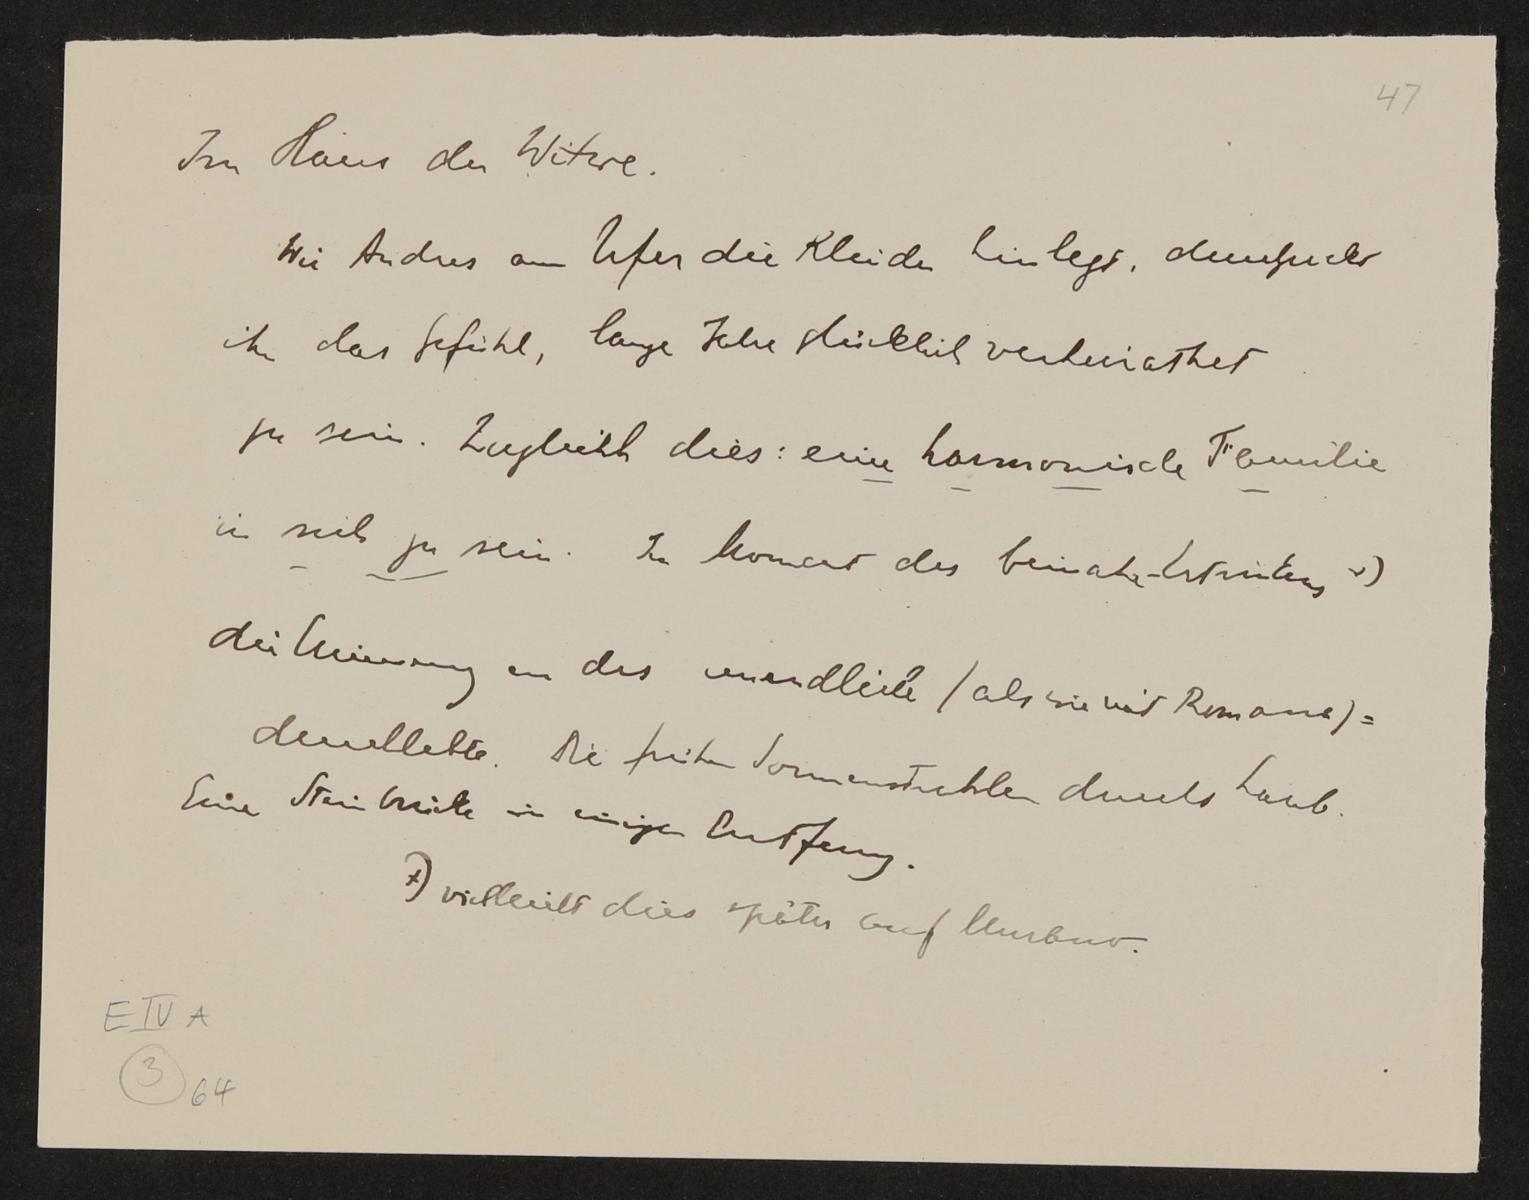 47
Im Haus der Witwe.
Wie Andres am Ufer die Kleider hinlegt, durchzuckt
ihn das Gefühl, lange Jahre glücklich verheirathet
zu sein. Zugleich dies: eine harmonische Familie
in sich zu sein. Im Moment des beinahe-Ertrinkens +)
die Erinnerung an das unendliche (als sie mit Romana) =
durchlebte. Die frühen Sonnenstrahlen durchs Laub.
Eine Steinbrücke in einiger Entfernung.
+) vielleicht dies später auf
E IV A
3 64